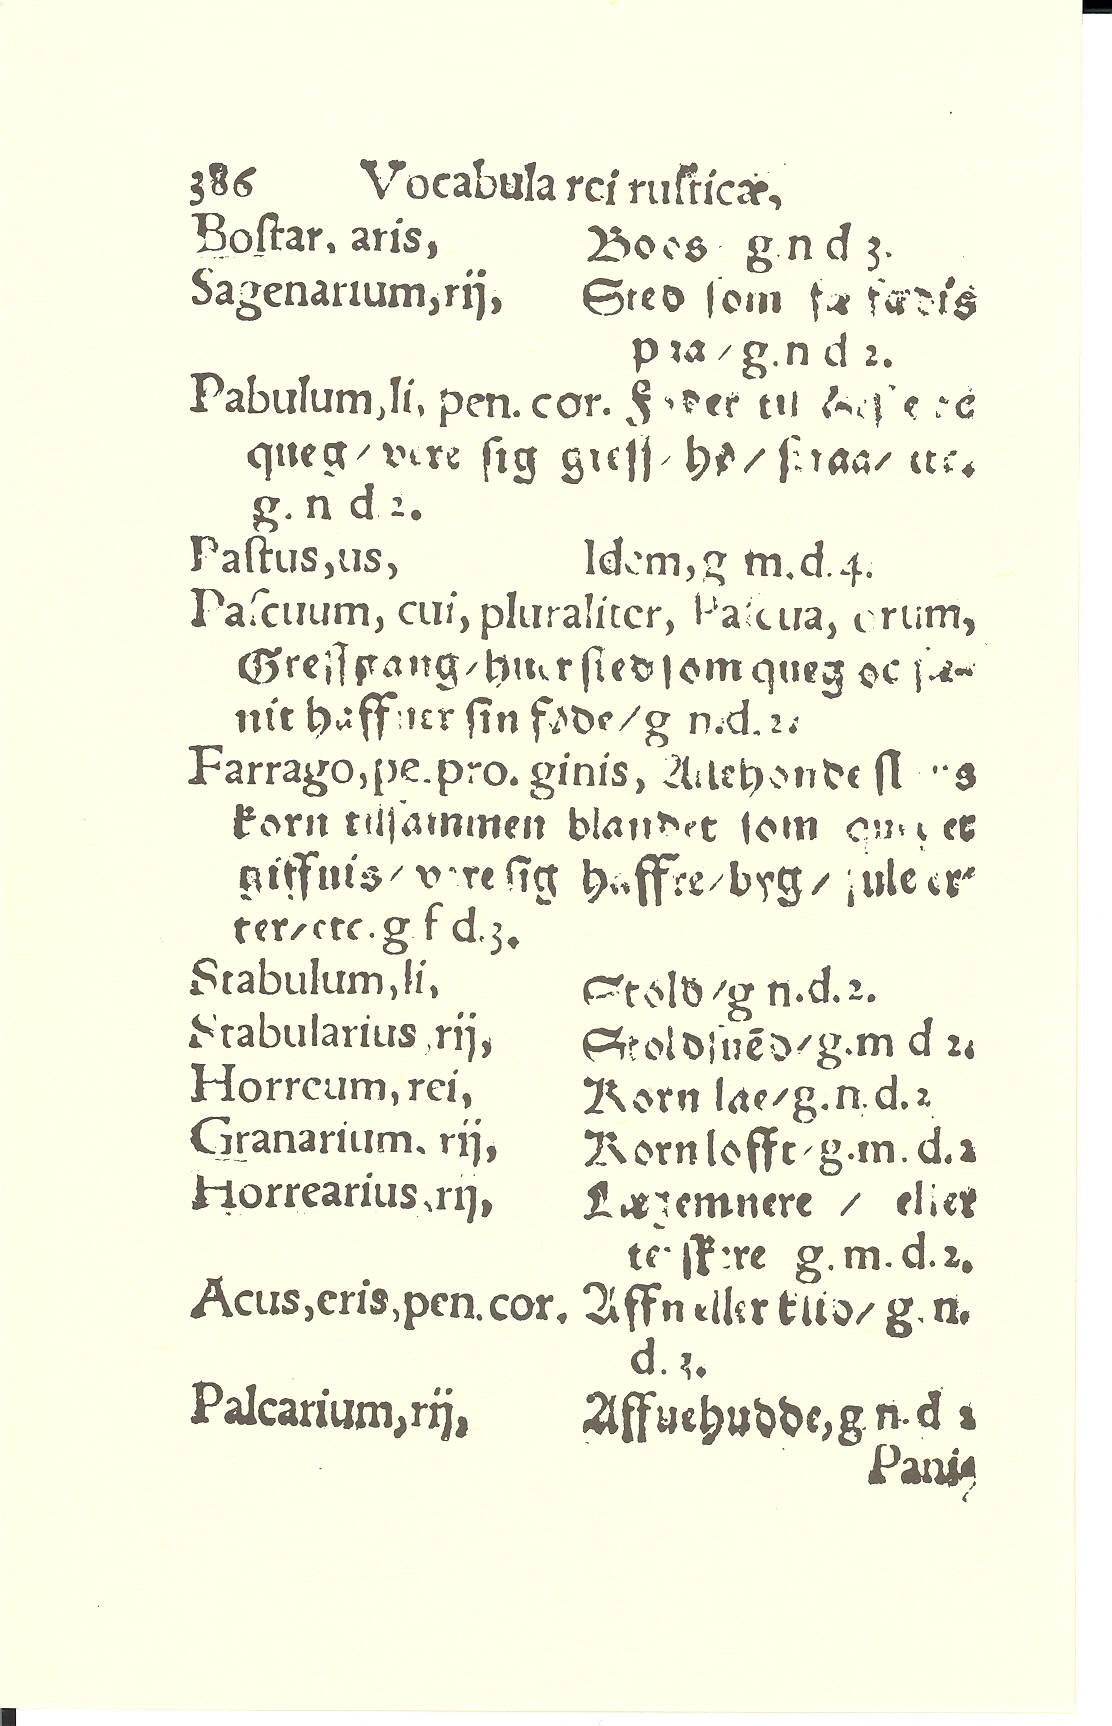 386 Vocabula rei rusticæ,
Bostar, aris, Boes g n d 3.
Sagenarium, rij, Sted som fæ fødis
paa / g. n d 2.
Pabulum, li, pen. cor. Foder til
queg / vere sig gress / hø / straa / etc.
g. n d 2.
Pastus, us, Idem, g m. d. 4.
Pascuum, cui, pluraliter, Pascua, orum,
Gressgang / huer sted som queg oc
nit haffuer sin føde / g n. d. 2.
Farrago, pe. pro. ginis, Allehonde
korn tilsammen blandet som
giffuis / vere sig haffre / byg / er-
ter / etc. g f d. 3.
Stabulum, li, Stold / g n. d. 2.
Stabularius, rij, Stoldsuēd / g. m d 2.
Horreum, rei, Korn lae / g. n. d. 2
Granarium, rij, Korn lofft / g. m. d. 2
Horrearius, rij, / eller
terskere g. m. d. 2.
Acus, eris, pen. cor. Affn eller / g. n.
d. 3.
Palearium, rij, Affuehudde, g n. d 2